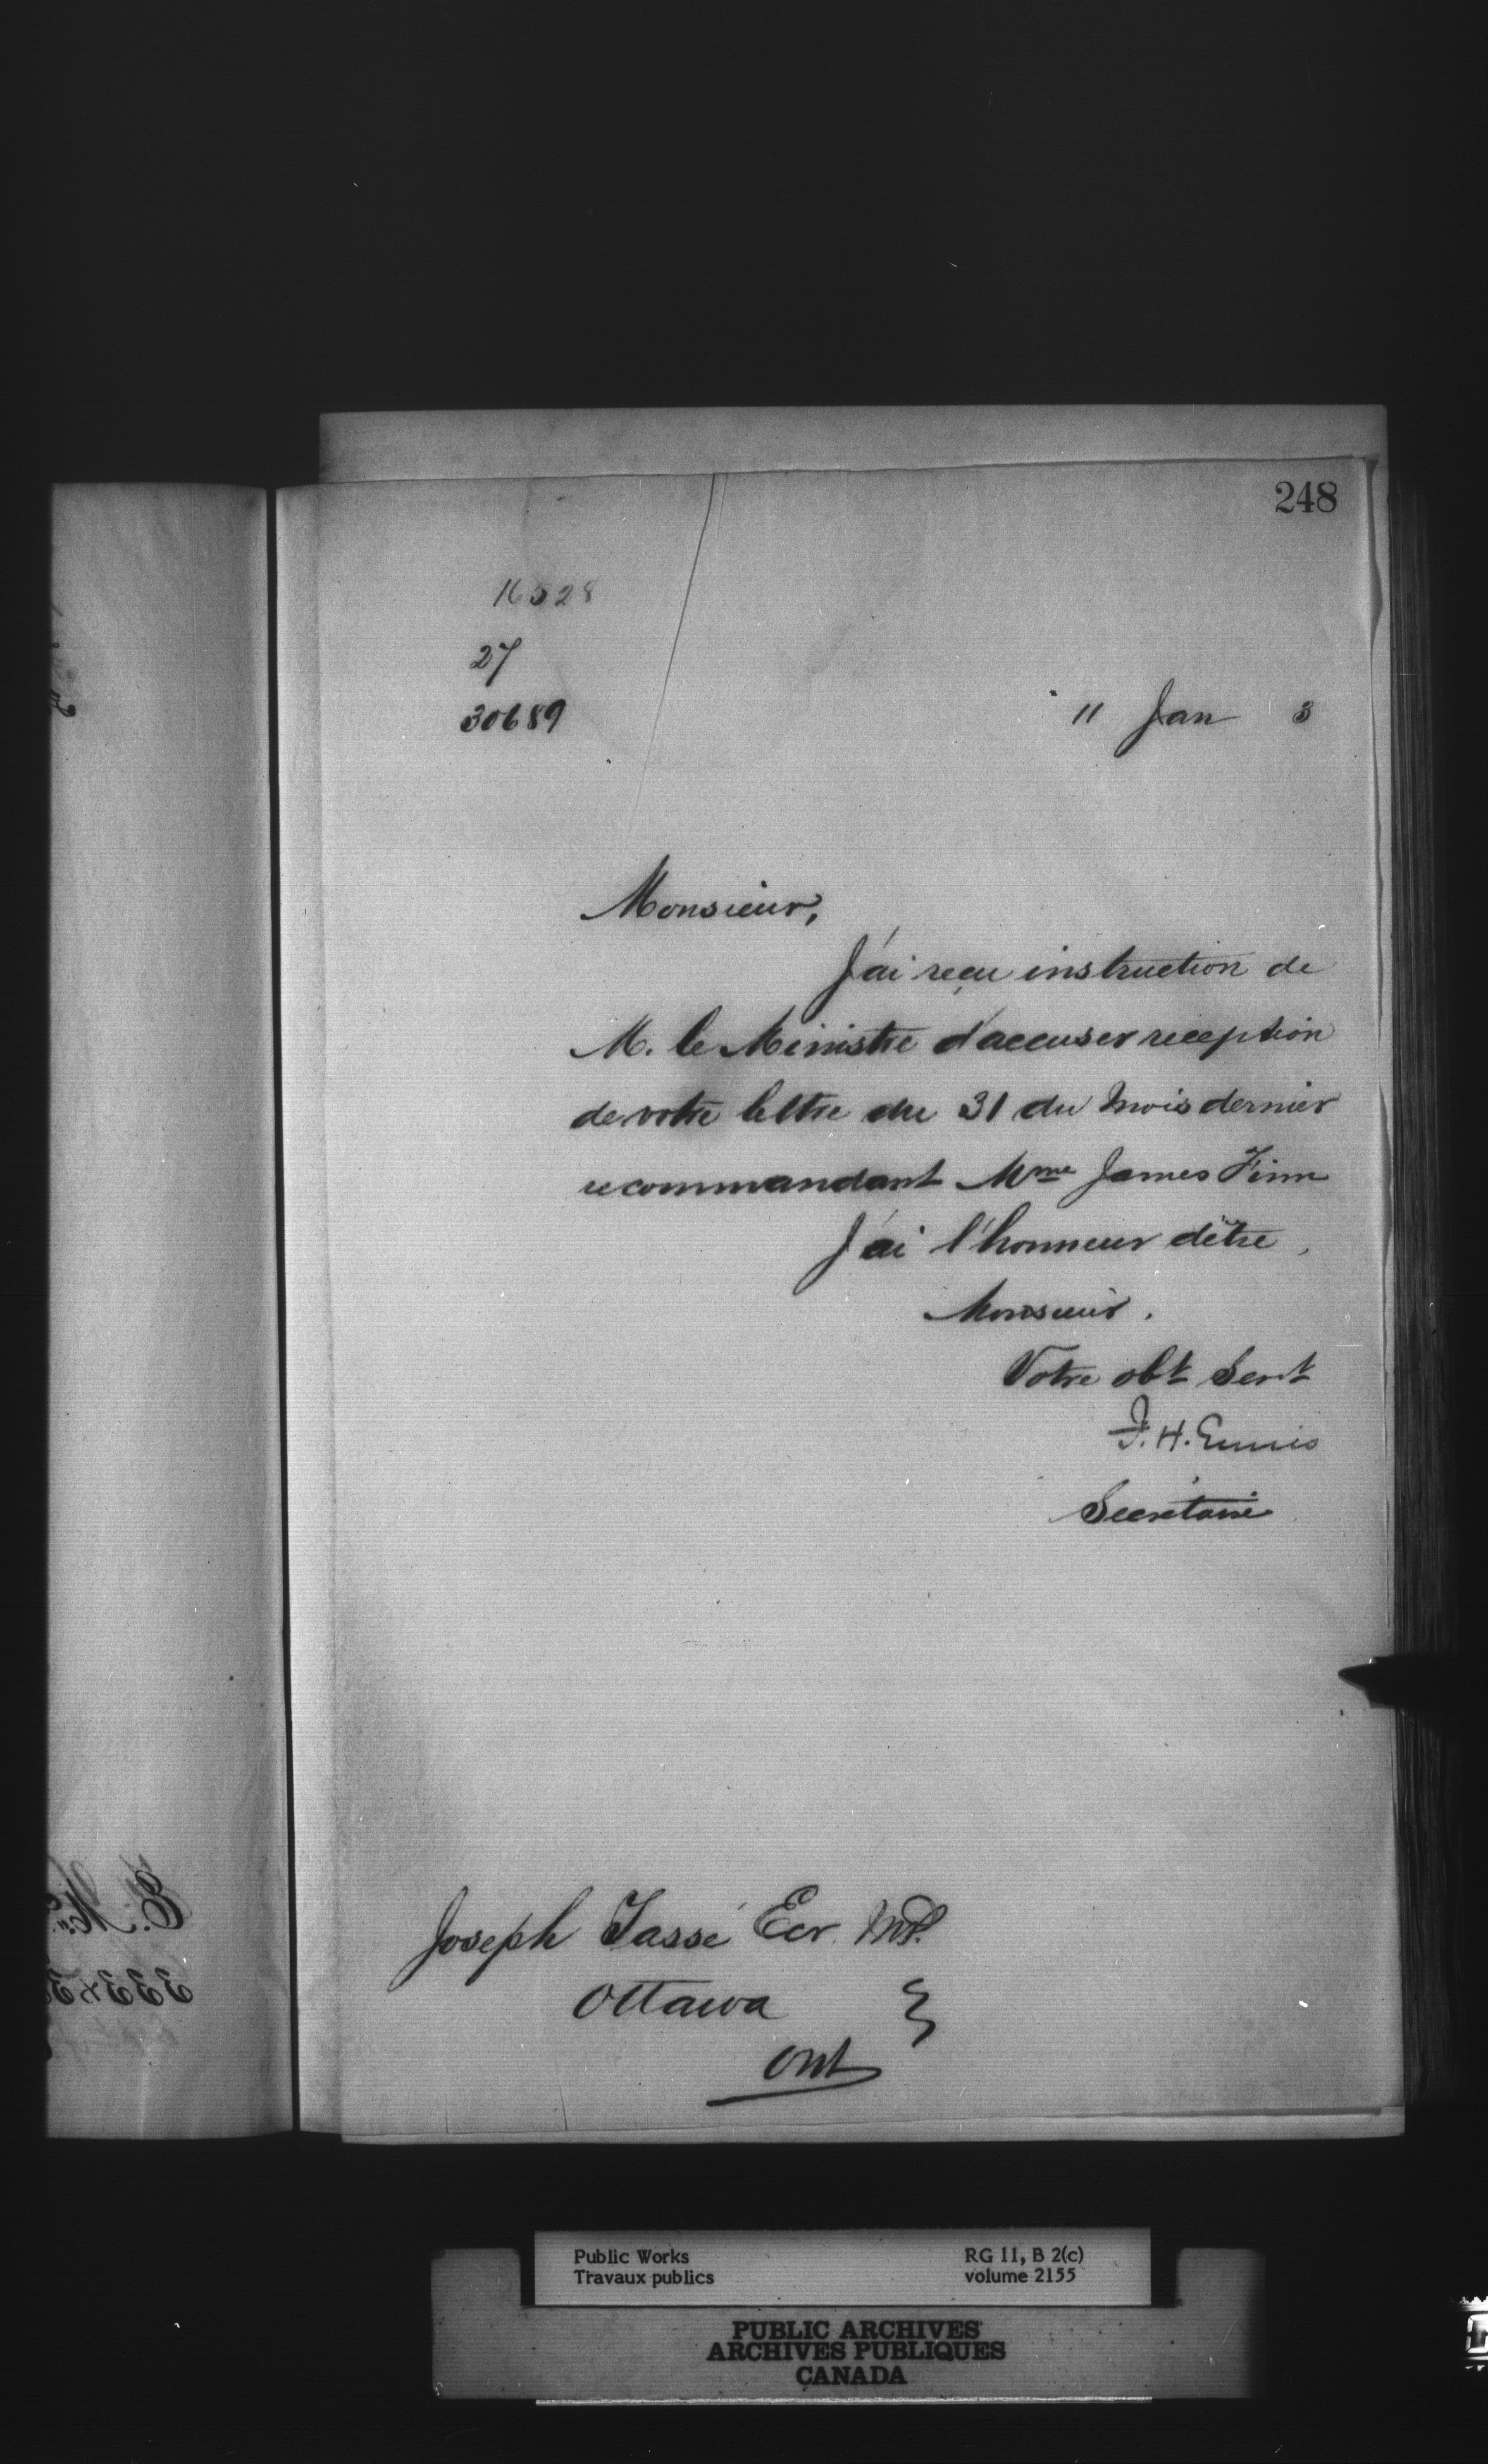 248
16528
27
30689
11 Jan 3
Monsieur,
J'ai reçu instruction de
M. le Ministre d'accuser reception
de votre lettre du 31 du mois dernier
recommandant Mme James Finn
J'ai l'honneur d'être,
Monsieur.
Votre obt Servt
F. H. Ennis
Secrétaire
Joseph Tassé Ecr. M.P.
Ottawa
Ont
Public Works
Travaux publics
RG 11, B 2(c)
volume 2155
PUBLIC ARCHIVES
ARCHIVES PUBLIQUES
CANADA